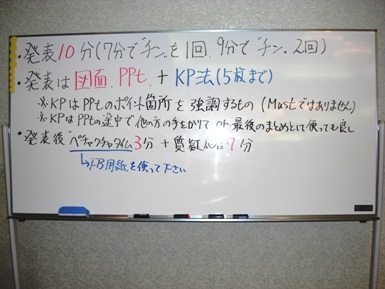 ・発表10分(7分でチンを1回、9分でチン。2回)
・発表は図面、PPt. + KP法(5枚まで)
※KPはPPtのポイント箇所を強調するもの(Mustではありません)
※KPはPPtの途中で他の方の手をかりて 最後のまとめとして使っても良し
・発表後 ペチャクチャタイム3分 + 質疑応答7分
FB用紙を使って下さい